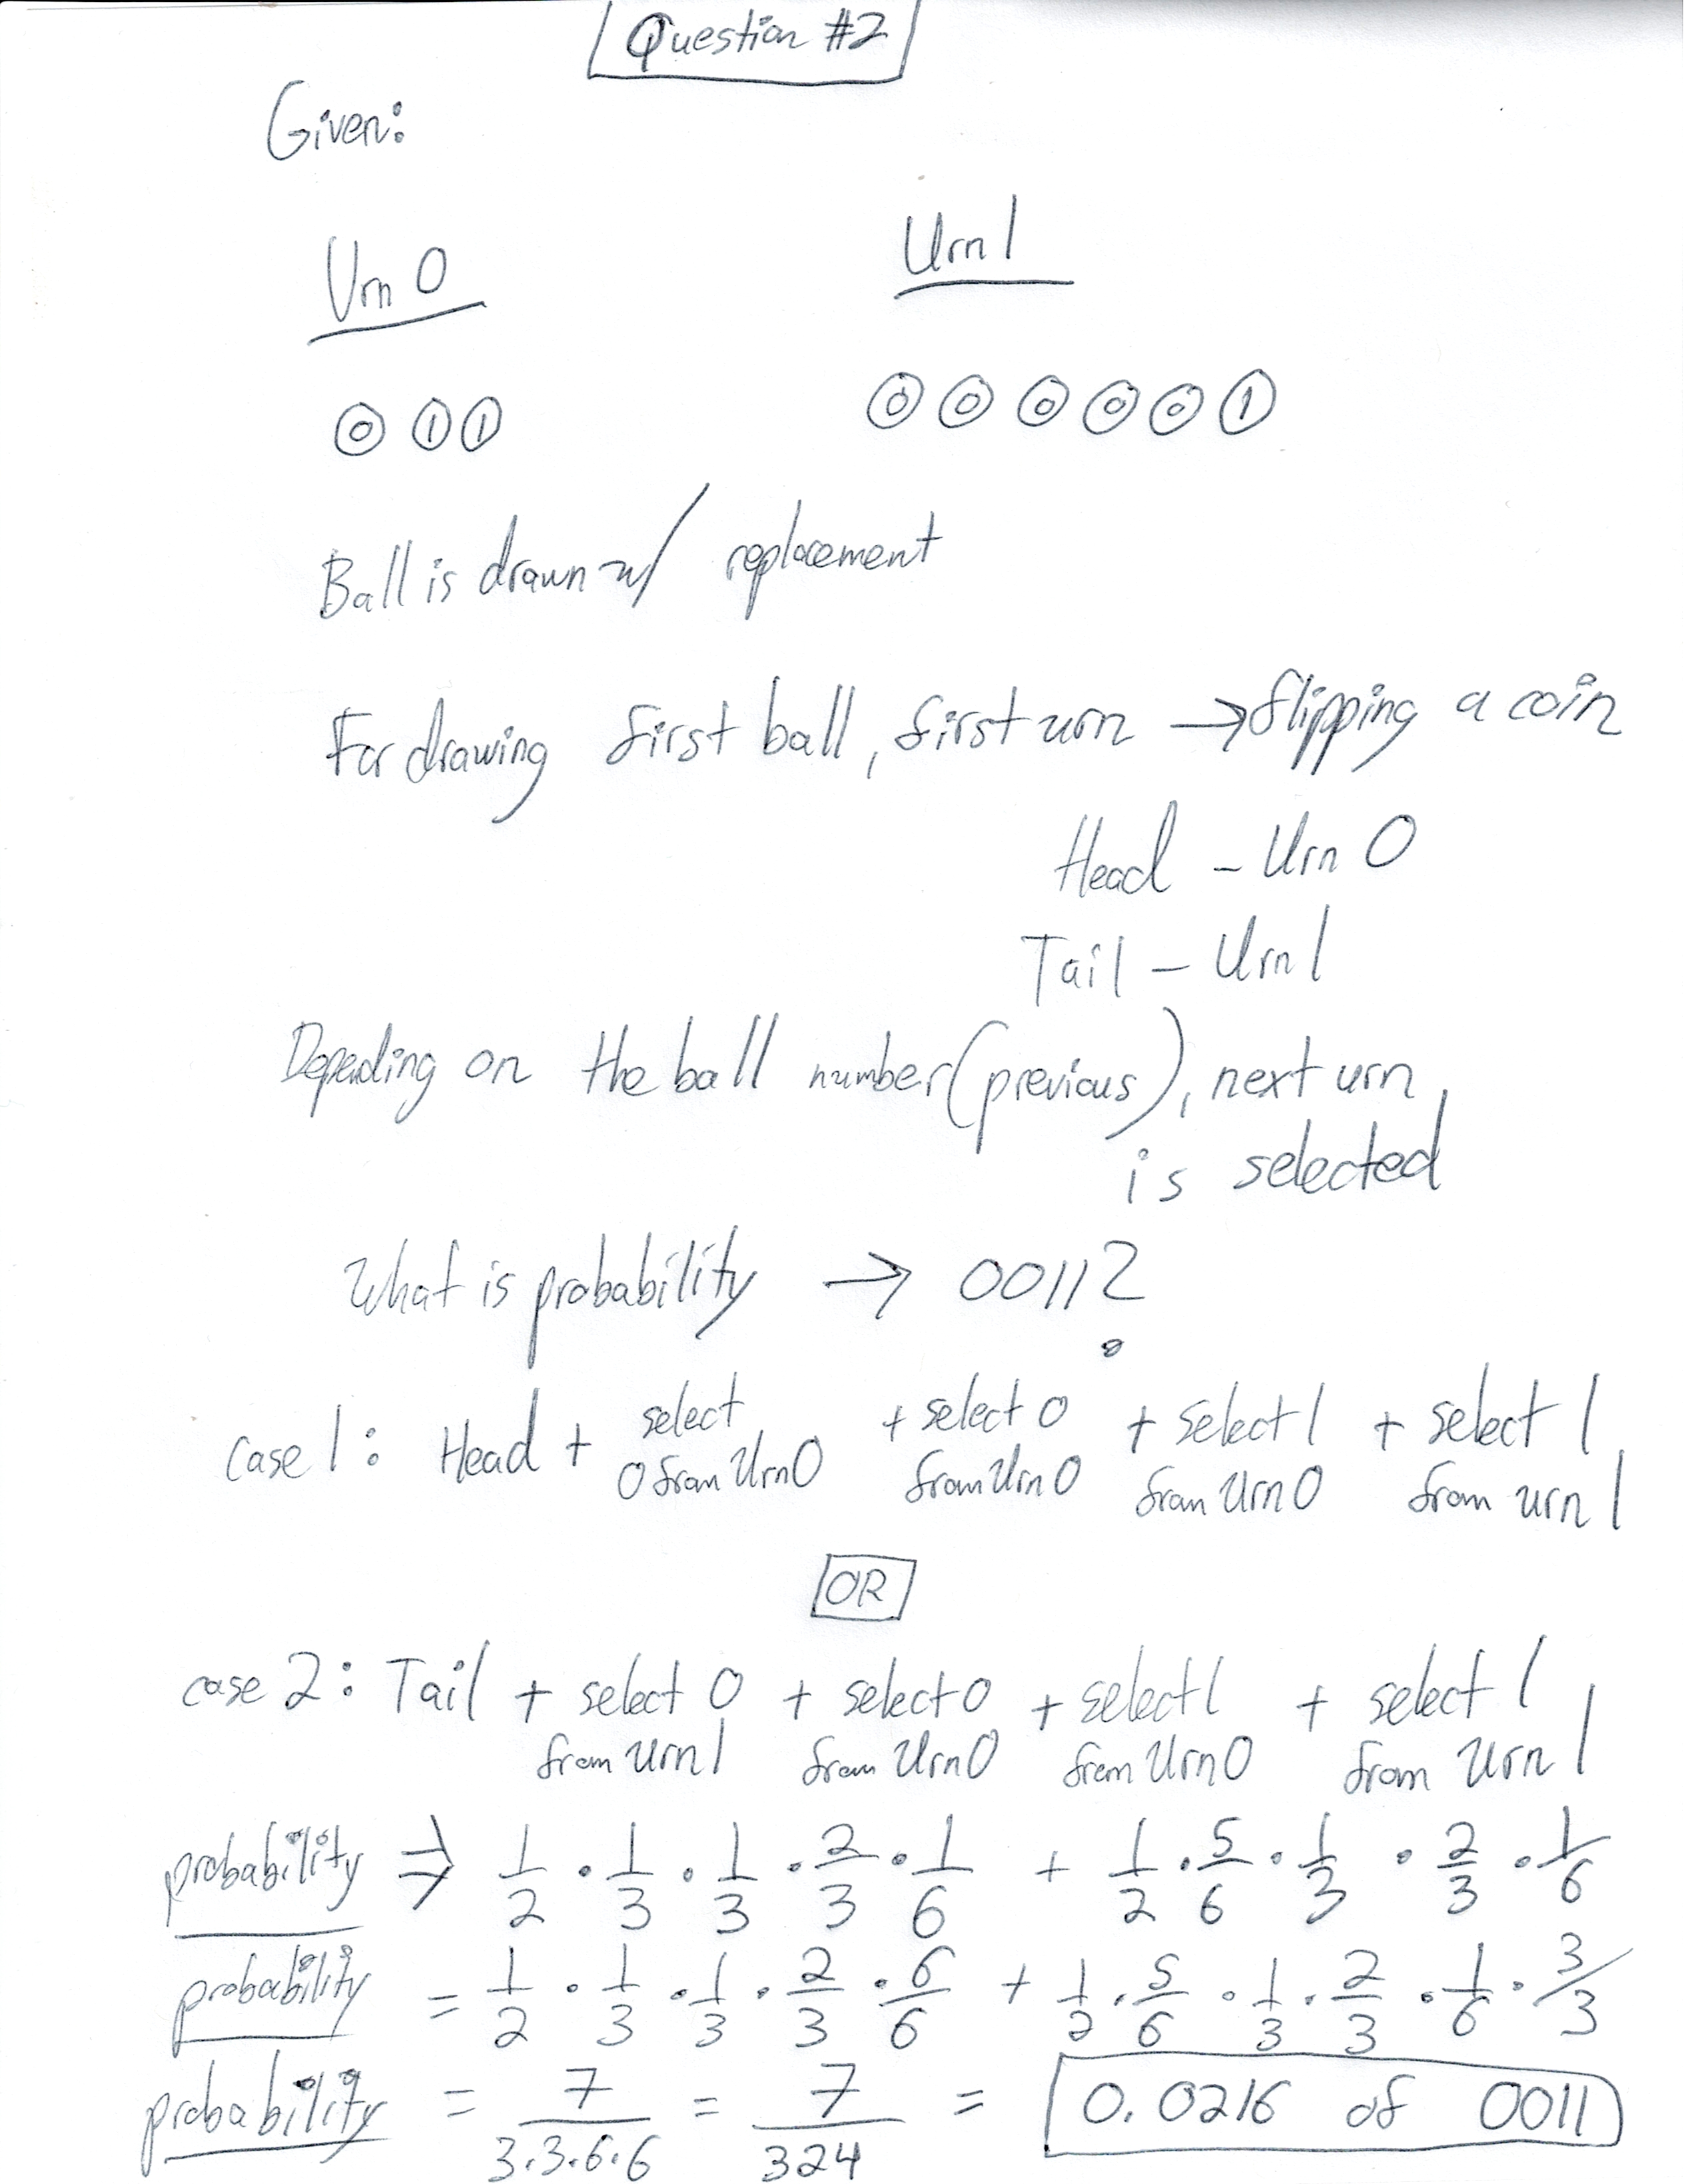 Question #2
Given:
Urn 0 Urn 1
0 1 1 0 0 0 0 0 1
Ball is drawn w/ replacement
For drawing first ball, first urn → flipping a coin
Head - Urn 0
Tail - Urn 1
Depending on the ball number (previous), next urn
is selected
What is probability → 0011?
case 1: Head + select 0 from Urn 0 + select 0 from Urn 0 + select 1 from Urn 0 + select 1 from urn 1
OR
case 2: Tail + select 0 from urn 1 + select 0 from Urn 0 + select 1 from Urn 0 + select 1 from Urn 1
probability ⇒ 1/2 · 1/3 · 1/3 · 2/3 · 1/6 + 1/2 · 5/6 · 1/3 · 2/3 · 1/6
probability = 1/2 · 1/3 · 1/3 · 2/3 · 6/6 + 1/2 · 5/6 · 1/3 · 2/3 · 1/6 · 3/3
probability = 7/3.3.6.6 = 7/324 = 0.0216 of 0011